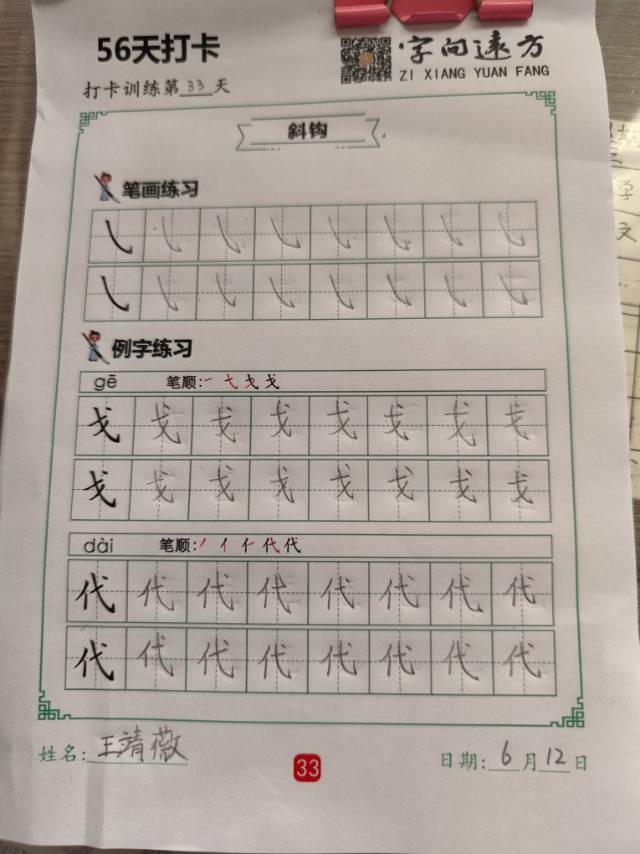 56天打卡
字向远方
ZI XIANG YUAN FANG
打卡训练第33天
斜钩
笔画练习
㇂ ㇂ ㇂ ㇂ ㇂ ㇂ ㇂ ㇂
㇂ ㇂ ㇂ ㇂ ㇂ ㇂ ㇂ ㇂
例字练习
gē 笔顺: ㇀ 弋 戈 戈
戈 戈 戈 戈 戈 戈 戈 戈
戈 戈 戈 戈 戈 戈 戈 戈
dài 笔顺: 丿 亻 仁 代 代
代 代 代 代 代 代 代 代
代 代 代 代 代 代 代 代
姓名: 王靖薇
33
日期: 6月12日
学
文